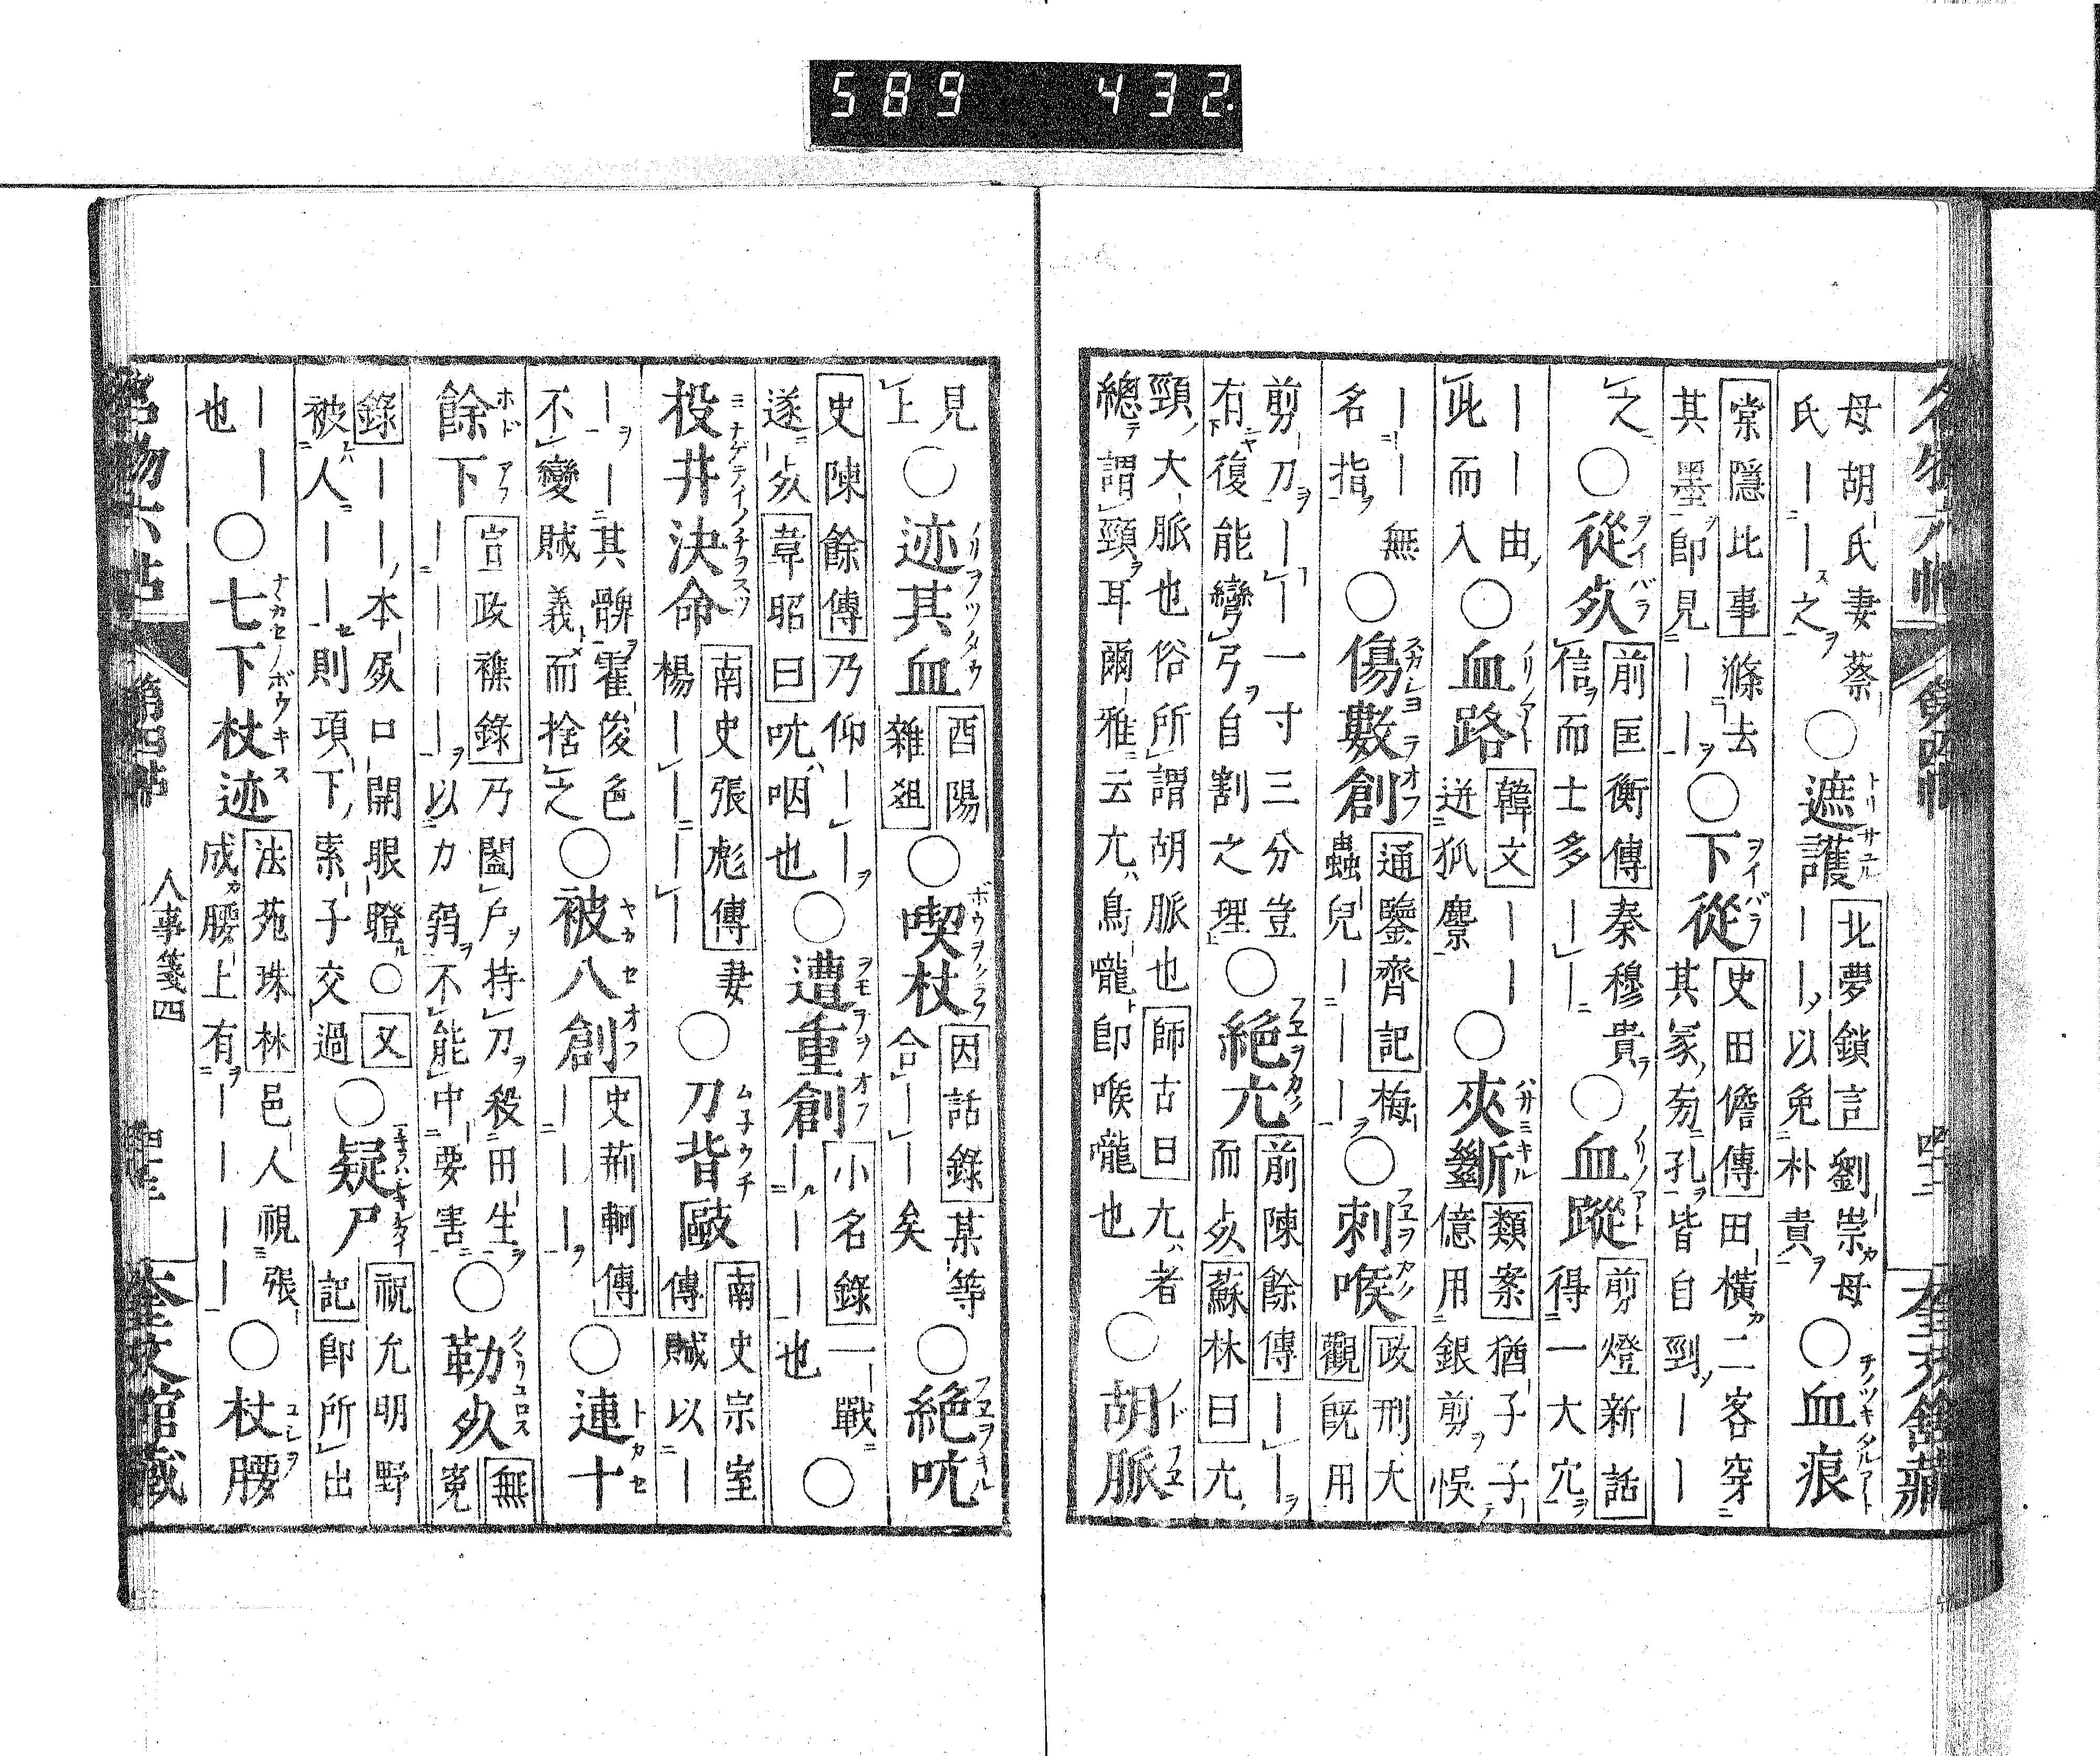 名物六帖 第四帖 四十二 奎文館藏
母胡氏妻蔡
氏――之
○遮護
北夢鎖言 劉崇母
――以免朴責
○血痕
棠隱比事 滌去
其墨卽見――
○下從
史田儋傳 田橫二客穿
其冢旁孔皆自剄――
之○從死
前匡衡傳 秦穆貴
信而士多――
○血蹤
剪燈新話
得一大穴
――由
此而入
○血路
韓文 ――
迸狐麖
○夾斷
類案 猶子子
億用銀剪悞
――無
名指
○傷數創
通鑒齊記 梅
蟲兒――――
○刺喉
政刑大
觀 旣用
剪刀――一寸三分豈
有復能彎弓自割之理
○絕亢
前陳餘傳 ――
而死 蘇林曰 亢
頸大脈也俗所謂胡脈也 師古曰 亢者
總謂頸耳爾雅云亢鳥嚨卽喉嚨也
○胡脈
見
上
○迹其血
酉陽
雜俎
○喫杖
因話錄 某等
合――矣
○絕吭
史陳餘傳 乃仰――
遂死 韋昭曰 吭咽也
○遭重創
小名錄 一戰
――――也
○
投井決命
南史張彪傳 妻
楊――――
○刀背毆
南史宗室
傳 賊以―
――其髀霍俊色
不變賊義而捨之
○被八創
史荊軻傳
―――
○連十
餘下
宣政襍錄 乃闔戶持刀殺田生
――――以力弱不能中要害
○勒死
無
冤
錄 ――本死口開眼瞪○又
被人―――則項下索子交過
○疑尸
祝允明野
記 卽所出
――
也
○七下杖迹
法苑珠林 邑人視張
成腰上有――――
○杖腰
名物六帖 第四帖 人事箋四 四十三 奎文館藏
589 432.